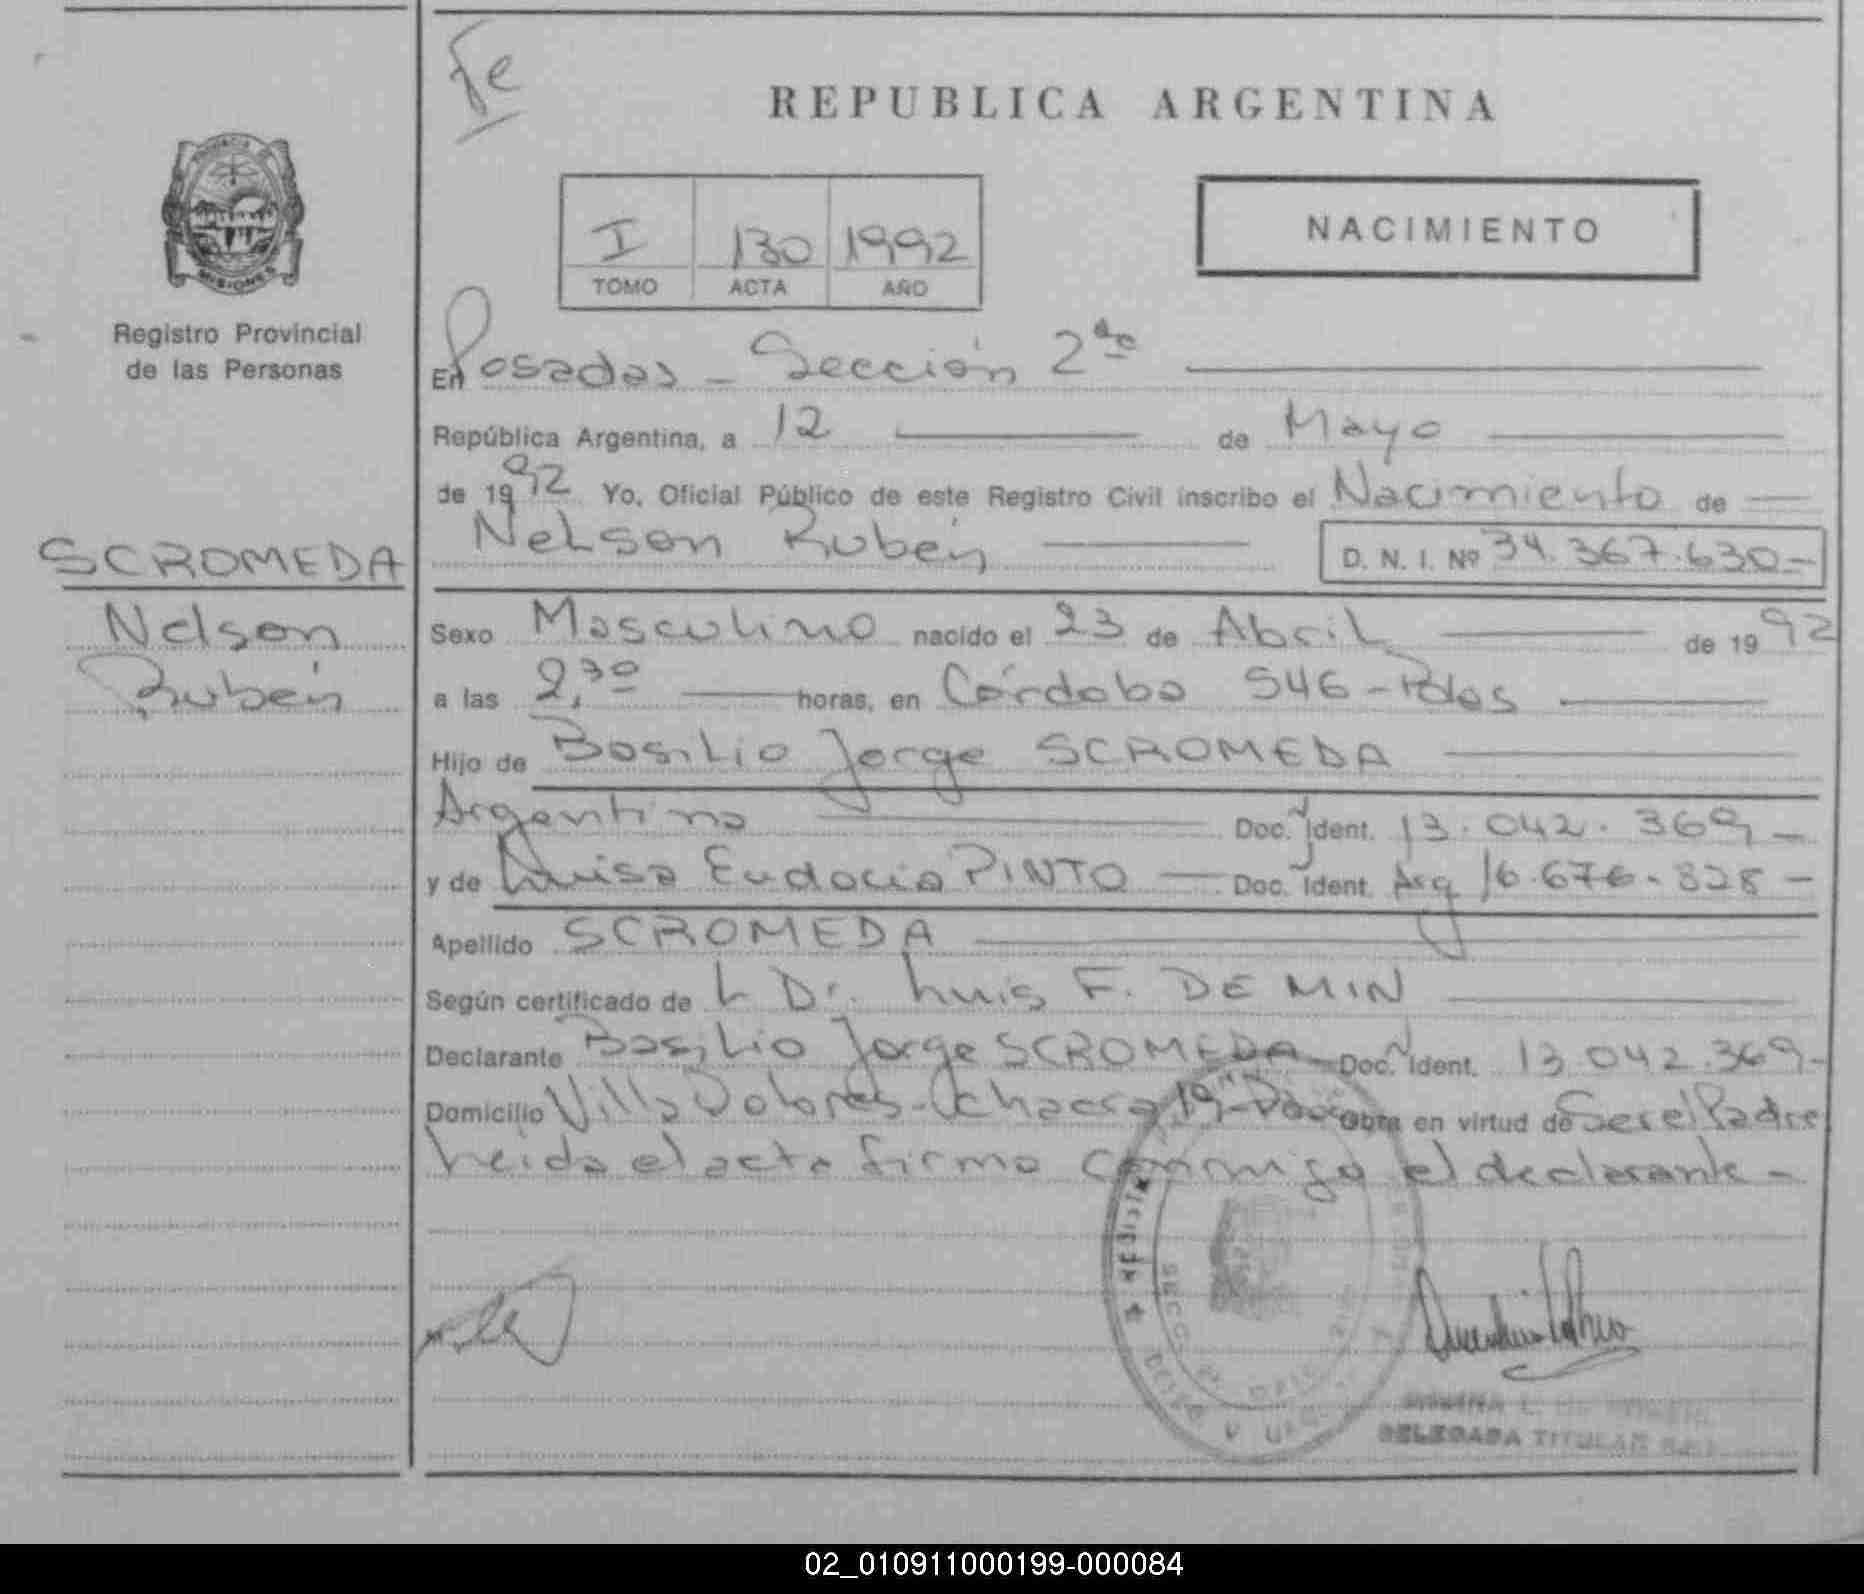 Fe
REPUBLICA ARGENTINA
PROVINCIA DE
MISIONES
I 130 1992
TOMO ACTA AÑO
NACIMIENTO
Registro Provincial
de las Personas
En Posadas - Sección 2da
República Argentina, a 12 de Mayo
de 1992 Yo, Oficial Público de este Registro Civil inscribo el Nacimiento de
Nelson Rubén D. N. I. Nº 34.367.630-
SCROMEDA
Nelson
Rubén
Sexo Masculino nacido el 23 de Abril de 1992
a las 2,30 horas, en Córdoba 546-Pdas
Hijo de Basilio Jorge SCROMEDA
Argentino Doc. Ident. 13.042.369-
y de Luisa Eudocia PINTO - Doc. Ident. Arg 16.676.828-
Apellido SCROMEDA
Según certificado de L Dr. Luis F. DE MIN
Declarante Basilio Jorge SCROMEDA Doc. Ident. 13.042.369-
Domicilio Villa Dolores-Chacra 19- Obra en virtud de Ser el Padre
Leida el acta firma conmigo el declarante-
DELEGADA TITULAR
02_010911000199-000084